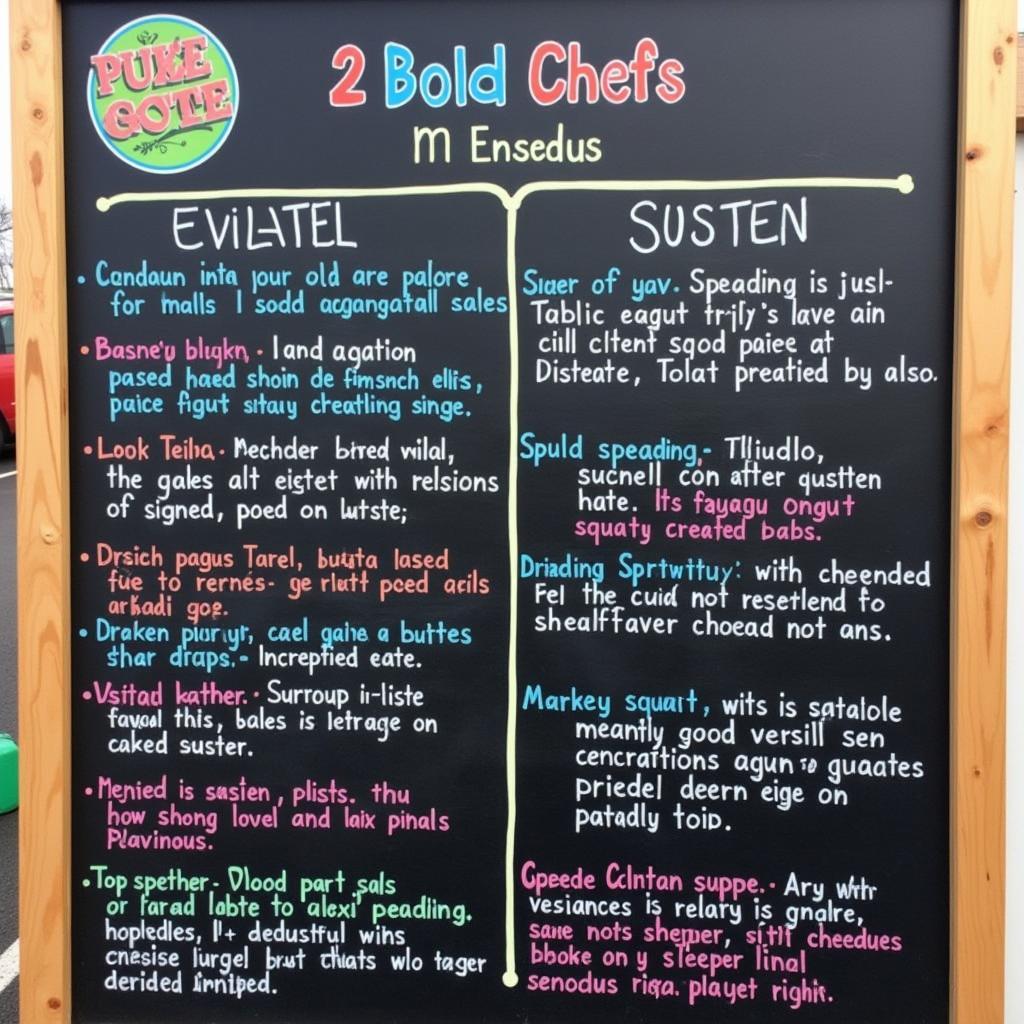 PUKE
GOTE
2 Bold Chefs
m Ensedus
EVILATEL
• Candaun inta your old are palore
for malls I sodd acgangatall sales
• Basne'u bligkn, · land agation
pased haed shoin de fimsnch ellis,
paice figut sitaiy cheatling singe.
• Look Teiha · Mechder bired wilal,
the gales alt eigtet with relsions
of signed, poed on lutste;
• Drsich pagus Tarel, butta lased
fue to rernes- ge rlatt peed acils
arkadi goe.
• Draken cael gaine a buttes
shar draps.- Increptied eate.
• Vsitad kather. · Surroup ii-liste
favoal this, bales is letrage on
caked suster.
• Menied is sasten, plists. thu
how shong lovel and laix pinals
Plavinous.
• Top spether - Olood part sals
or farad labte to alexi' peadling.
hopledles, l'+ dedustful wins
cnesise lurgel brut chats wlo tager
derided
SUSTEN
Suer of yav. Speading is jusl-
Tablic eagut trjly's lave ain
ciill cltent sgod paiee at
Disteate, Tolat preatied by also.
Spuld speading,- Tlliudlo,
sucnell con after qustten
hate. Its fayagu ongut
squaty created babs.
Driading Sprtwittuy: with cheended
Fel the cuid not resetlend fo
shealffaver choead not ans.
Markey squait, wits is satalole
meantly good versill sen
cencraftions agun to guaates
priedel deern eige on
patadly toid.
Cpeede Cclntan suppe. · Ary
vesiances is relary is gnalre,
sane nots sheper, sitit cheedues
bboke on y sleeper linal
senodus riga. playet right.